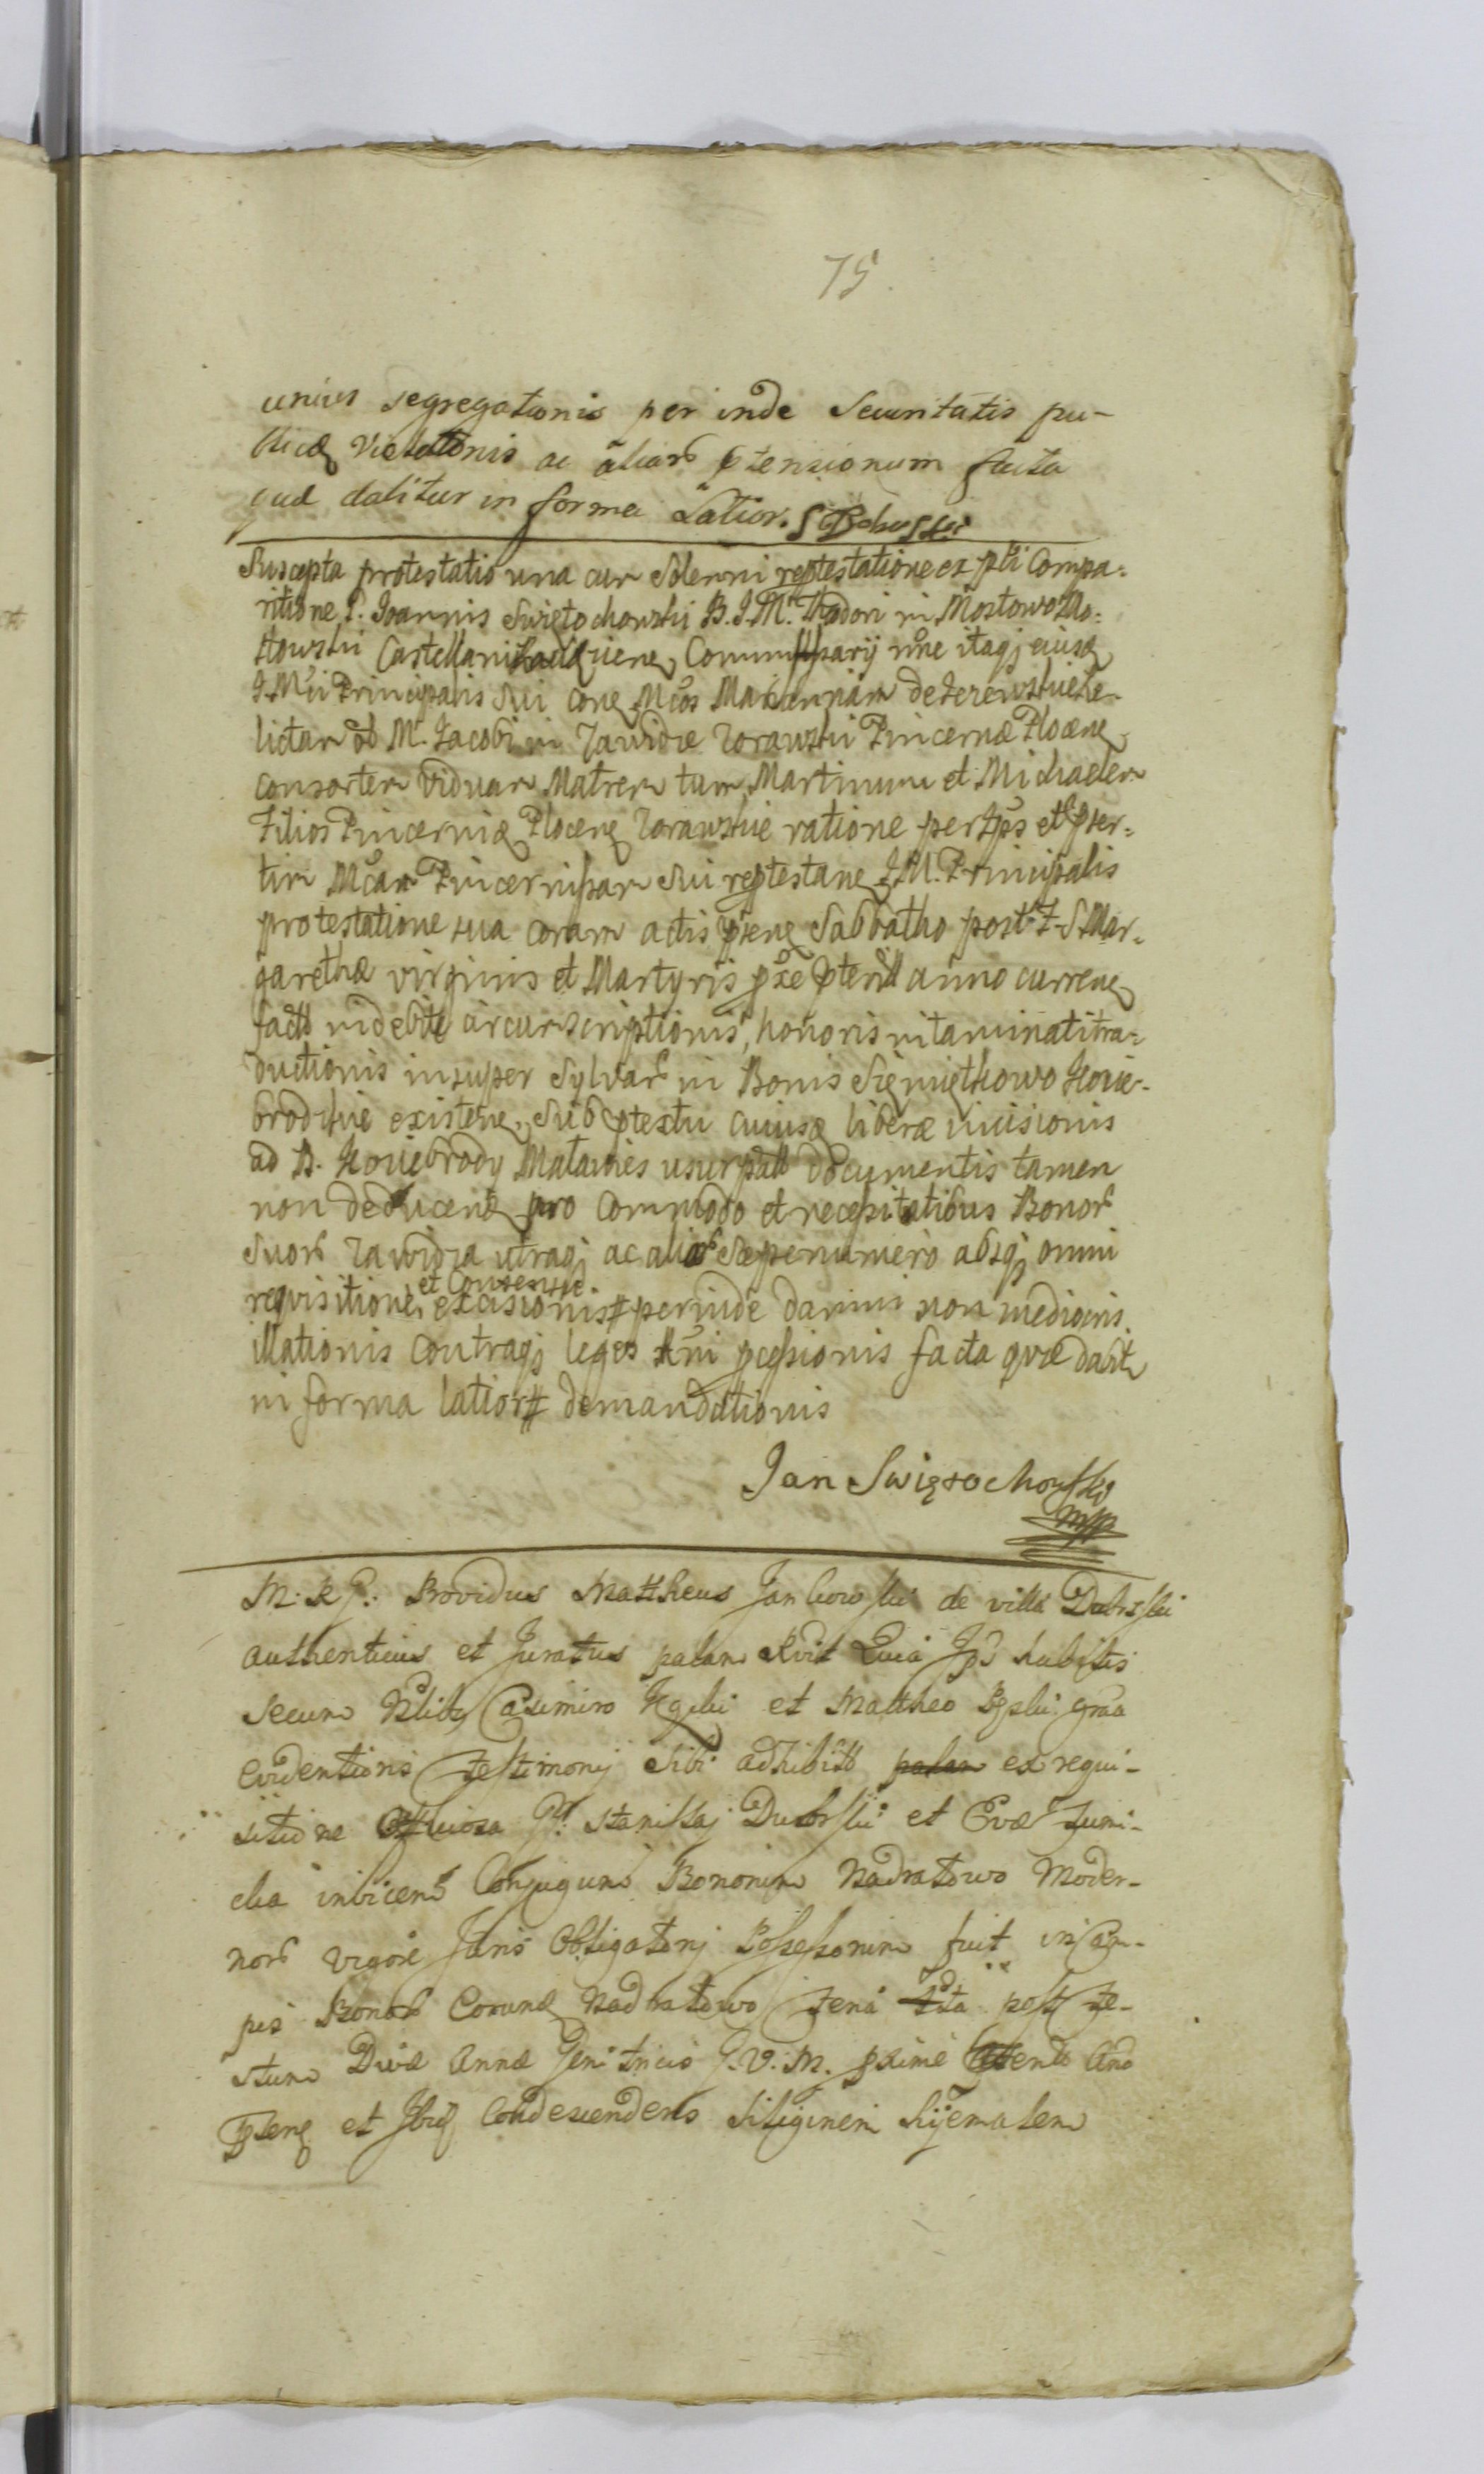 75.
unius segregationis per inde Securitatis pu-
blicæ Violationis ac aliar ptensionum facta
quæ dabitur in forma Latior.
Suscepta protestatio una cum Solenni reptestatione ex psti Compa=
ritione G. Joannis Swiętochowski B. I. M. Thadori in Mostowo Mo=
stowski Castellani Commissarij nne itaqj eiusq
I. Mci Principalis Sui Mariannam de Zerewskie Re-
lictam M. Jacobi in Zawidze Zorawski Pincernæ Plocen
consortem Viduam Matrem tum Martinum et Michaelem
Filios Pincernidæ Plocen Zorawskie ratione et pser=
tim Pincernissam Sui reptestan I. M. Principalis
protestatione sua coram actis psen Sabbatho post F. S. Mar=
garethæ virginis et Martyris pxe pterit anno curren
indebite circumscriptionis, honoris intaminati tra=
ductionis insuper Sylvar in Bonis Siemiętkowo Kosie-
brodskie existen, Sub ptextu cuiusq liberæ incisionis
ad B. Kosiebrody Matawies usurpatt documentis tamen
non deducend pro commodo et necessitatibus Bonor
Suor Zawidza utraqj ac aliar Sæpenumero absqj omni
requisitione et Consensu excisionis # perinde damni non mediocris
illationis contraqj leges Rni pcessionis facta qvæ dabit
in forma latior # demandationis
Jan Swiętochowski
mpp
M: R G: Providus Mattheus Jankowski de villa Dobrski
authenticus et Juratus palam Rvit Quia Ipse habitis
secum Nblibs Casimiro et Mattheo gnaa
Evidentioris Testimonij Sibi adhibitt palam ex requi-
sitione Officiosa Stanislaj Dobrski et Evæ Sumi-
cka invicem Conjugum Bonorum Nadratowo Moder-
nor vigore Juris Obligatorij Possessorum fuit in Cam-
pis Bonor Eorund Nadratowo Feria post Fe-
stum Divæ Annæ Genitricis G. V. M. pxime Anō
psen et Ibiq Condescendens Siliginem hijemalem